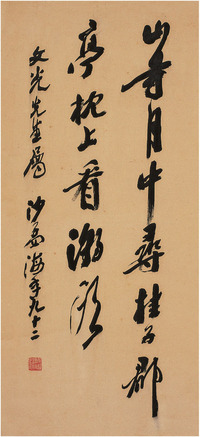 山寺月中尋桂子郡
亭枕上看潮頭
文光先生屬
沙孟海年九十二